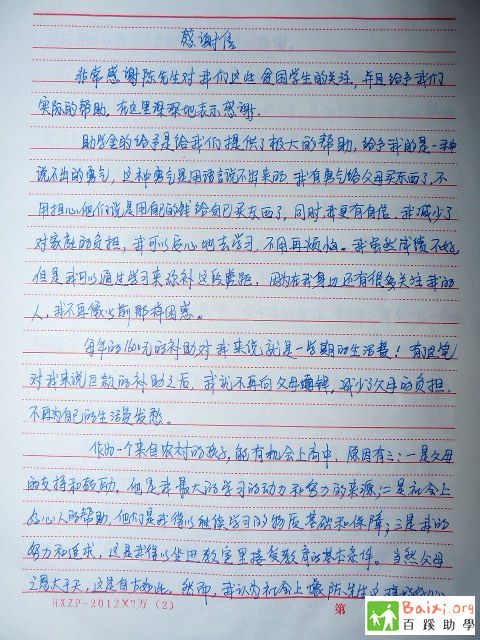 感谢信
非常感谢陈先生对我们这些贫困学生的关注，并且给予我们
实际的帮助，在这里深深地表示感谢。
助学金的给予是给我们提供了极大的帮助，给予我的是一种
说不出的勇气，这种勇气是用语言说不出来的 我有勇气给父母买东西了，不
用担心他们说是用自己的钱给自己买东西了，同时，我更有自信，我减少了
对家庭的负担，我可以安心地去学习，不用再烦恼。我虽然成绩不好，
但是我可以通过学习来弥补这段差距，因为在我身边还有很多关注我的
人，我不再像以前那样困惑。
每年的1600元的补助对我来说就是一学期的生活费！有了这笔
对我来说巨款的补助之后，我就不再向父母要钱，减少了父母的负担，
不再为自己的生活费发愁。
作为一个来自农村的孩子，能有机会上高中，原因有三：一是父母
的支持和鼓励，他是我最大的学习的动力和努力的来源；二是社会上
好心人的帮助，他们是我得以继续学习的物质基础和保障；三是我的
努力和追求，这是我得以坐进教室里接受教育的基本条件。当然父母
之恩大于天，这是自古如此，然而，我认为社会上像陈先生这样的好心
HXZP-2012X?万 (2)
第
Baixi.org
百蹊助學